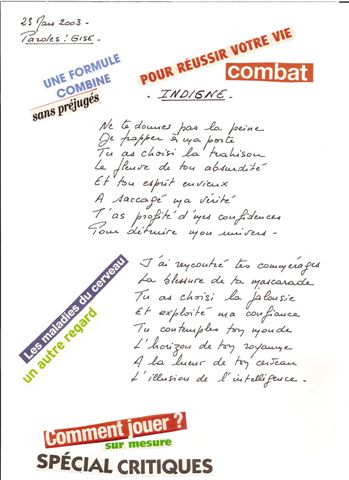 23 Mars 2003 -
Paroles : GISE -
UNE FORMULE
COMBINE
sans préjugés
POUR RÉUSSIR VOTRE VIE
combat
- INDIGNE -
Ne te donner pas la peine
De frapper à ma porte
Tu as choisi la trahison
Le fleuve de ton absurdité
Et ton esprit envieux
A saccagé ma vérité
T'as profité d'mes confidences
Pour détruire mon univers -
Les maladies du cerveau
un autre regard
J'ai rencontré tes commérages
La blessure de ta mascarade
Tu as choisi la jalousie
Et exploité ma confiance
Tu contemples ton monde
L'horizon de ton royaume
A la lueur de ton cerveau
L'illusion de l'intelligence -
Comment jouer ?
sur mesure
SPÉCIAL CRITIQUES